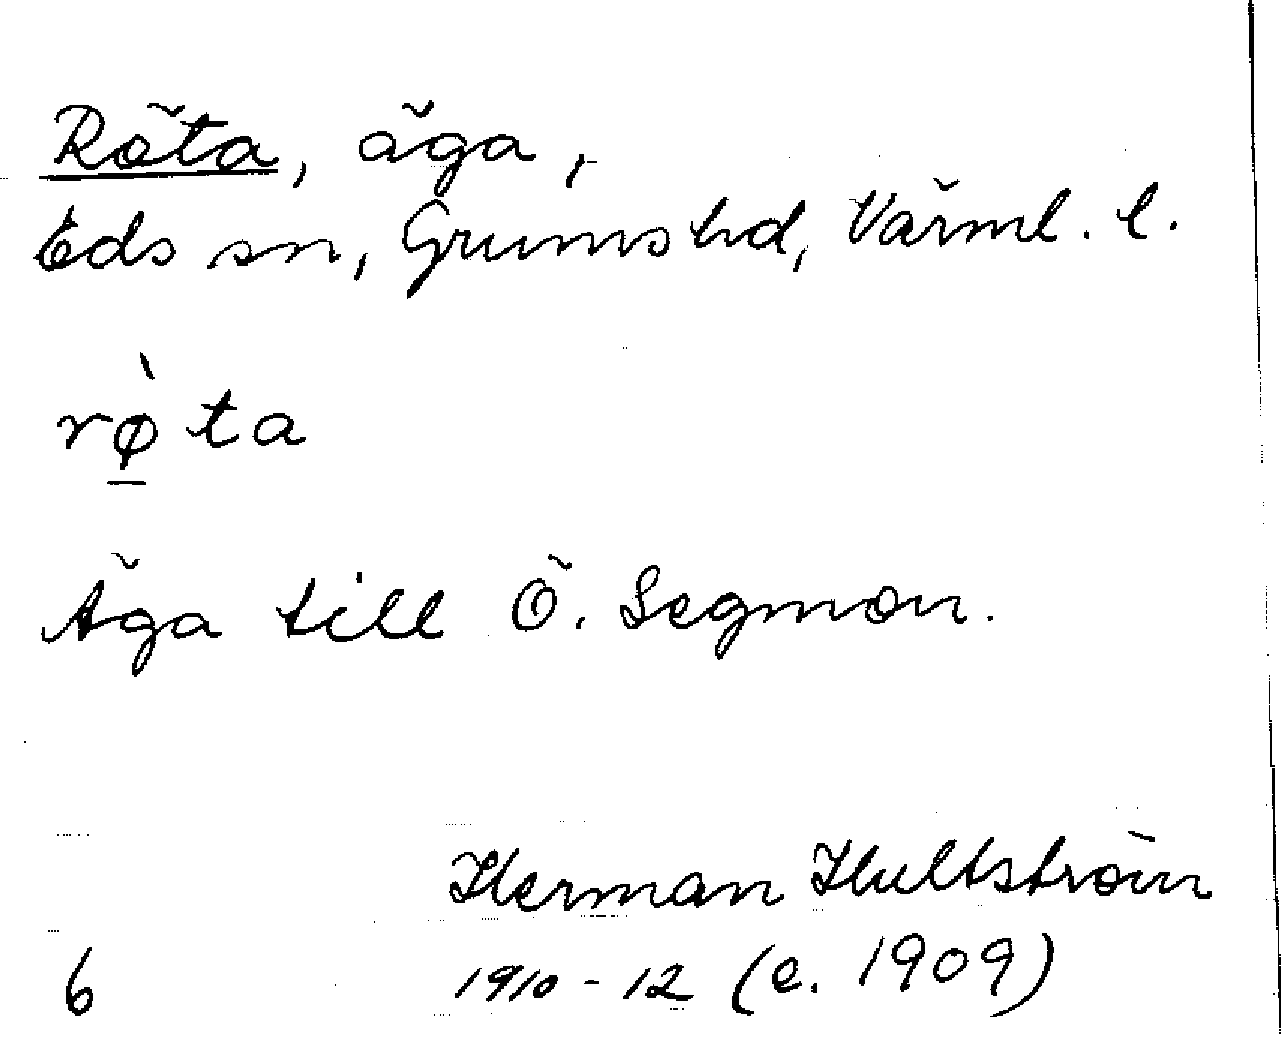 Röta, äga,
Eds sn, Grums hd, Värml. l.
rø̱̀ta
Äga till Ö. Segmon.
Herman Hultström
6 1910-12 (e. 1909)